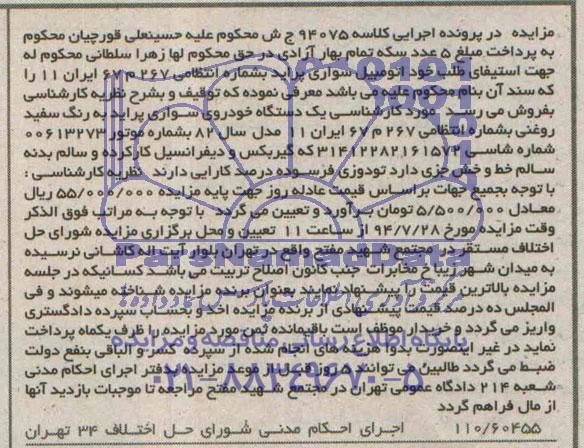 مزایده در پرونده اجرایی کلاسه ۹۴۰۷۵ ج ش محکوم علیه حسینعلی قورچیان محکوم
به پرداخت مبلغ ۵ عدد سکه تمام بهار آزادی در حق محکوم لها زهرا سلطانی محکوم له
جهت استیفای طلب خود اتومبیل سواری پراید بشماره انتظامی ۲۶۷ م ۶۷ ایران ۱۱ را
که سند آن بنام محکوم علیه می باشد معرفی نموده که توقیف و بشرح نظریه کارشناسی
بفروش می رسد . مورد کارشناسی یک دستگاه خودروی سواری پراید به رنگ سفید
روغنی بشماره انتظامی ۲۶۷ م ۶۷ ایران ۱۱ مدل سال ۸۲ بشماره موتور ۰۰۶۱۳۲۷۳
شماره شاسی ۳۱۴۱۲۲۸۲۱۶۱۵۷۲ که گیربکس و دیفرانسیل کارکرده و سالم بدنه
سالم خط و خش جزی دارد تودوزی فرسوده درصد کارایی دارند نظریه کارشناسی :
با توجه بجمیع جهات براساس قیمت عادله روز جهت پایه مزایده ۵۵/۰۰۰/۰۰۰ ریال
معادل ۵/۵۰۰/۰۰۰ تومان برآورد و تعیین می گردد با توجه به مراتب فوق الذکر
وقت مزایده مورخ ۹۴/۷/۲۸ از ساعت ۱۱ تعیین و محل برگزاری مزایده شورای حل
اختلاف مستقر در مجتمع شهید مفتح واقع در تهران بلوار آیت اله کاشانی نرسیده
به میدان شهر زیبا خ مخابرات جنب کانون اصلاح تربیت می باشد کسانیکه در جلسه
مزایده بالاترین قیمت را پیشنهاد نمایند بعنوان برنده مزایده شناخته میشوند و فی
المجلس ده درصد قیمت پیشنهادی از برنده مزایده اخذ و بحساب سپرده دادگستری
واریز می گردد و خریدار موظف است باقیمانده ثمن مورد مزایده را ظرف یکماه پرداخت
نماید در غیر اینصورت بدوا هزینه های انجام شده از سپرده کسر و الباقی بنفع دولت
ضبط می گردد طالبین می توانند ۵ روز قبل از موعد مزایده بدفتر اجرای احکام مدنی
شعبه ۲۱۴ دادگاه عمومی تهران در مجتمع شهید مفتح مراجعه تا موجبات بازدید آنها
از مال فراهم گردد
۱۱۰/۶۰۴۵۵ اجرای احکام مدنی شورای حل اختلاف ۳۴ تهران
پایگاه اطلاع رسانی مناقصه و مزایده
۰۲۱-۸۸۳۴۹۶۷۰-۵